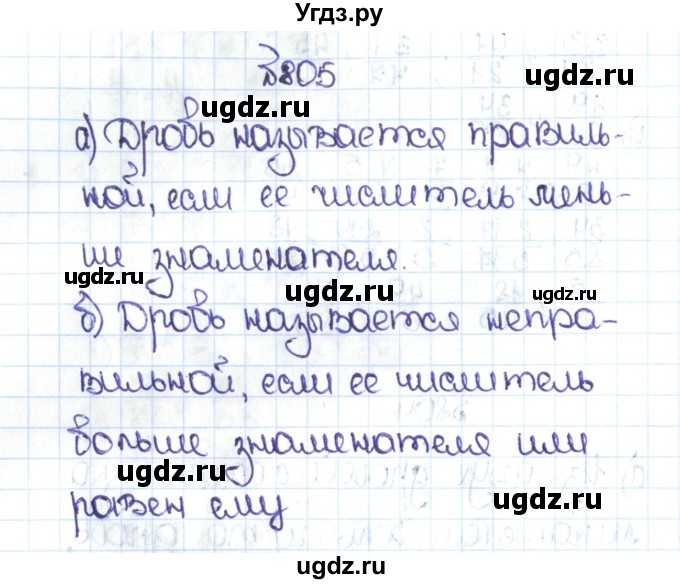 Угдз.ру
№805
ugdz.ru
ugdz.ru
а) Дробь называется правиль-
ной, если ее числитель мень-
ше знаменателя.
ugdz.ru
ugdz.ru
ugdz.ru
б) Дробь называется непра-
вильной, если ее числитель
больше знаменателя или
ugdz.ru
равен ему
ugdz.ru
ugdz.ru